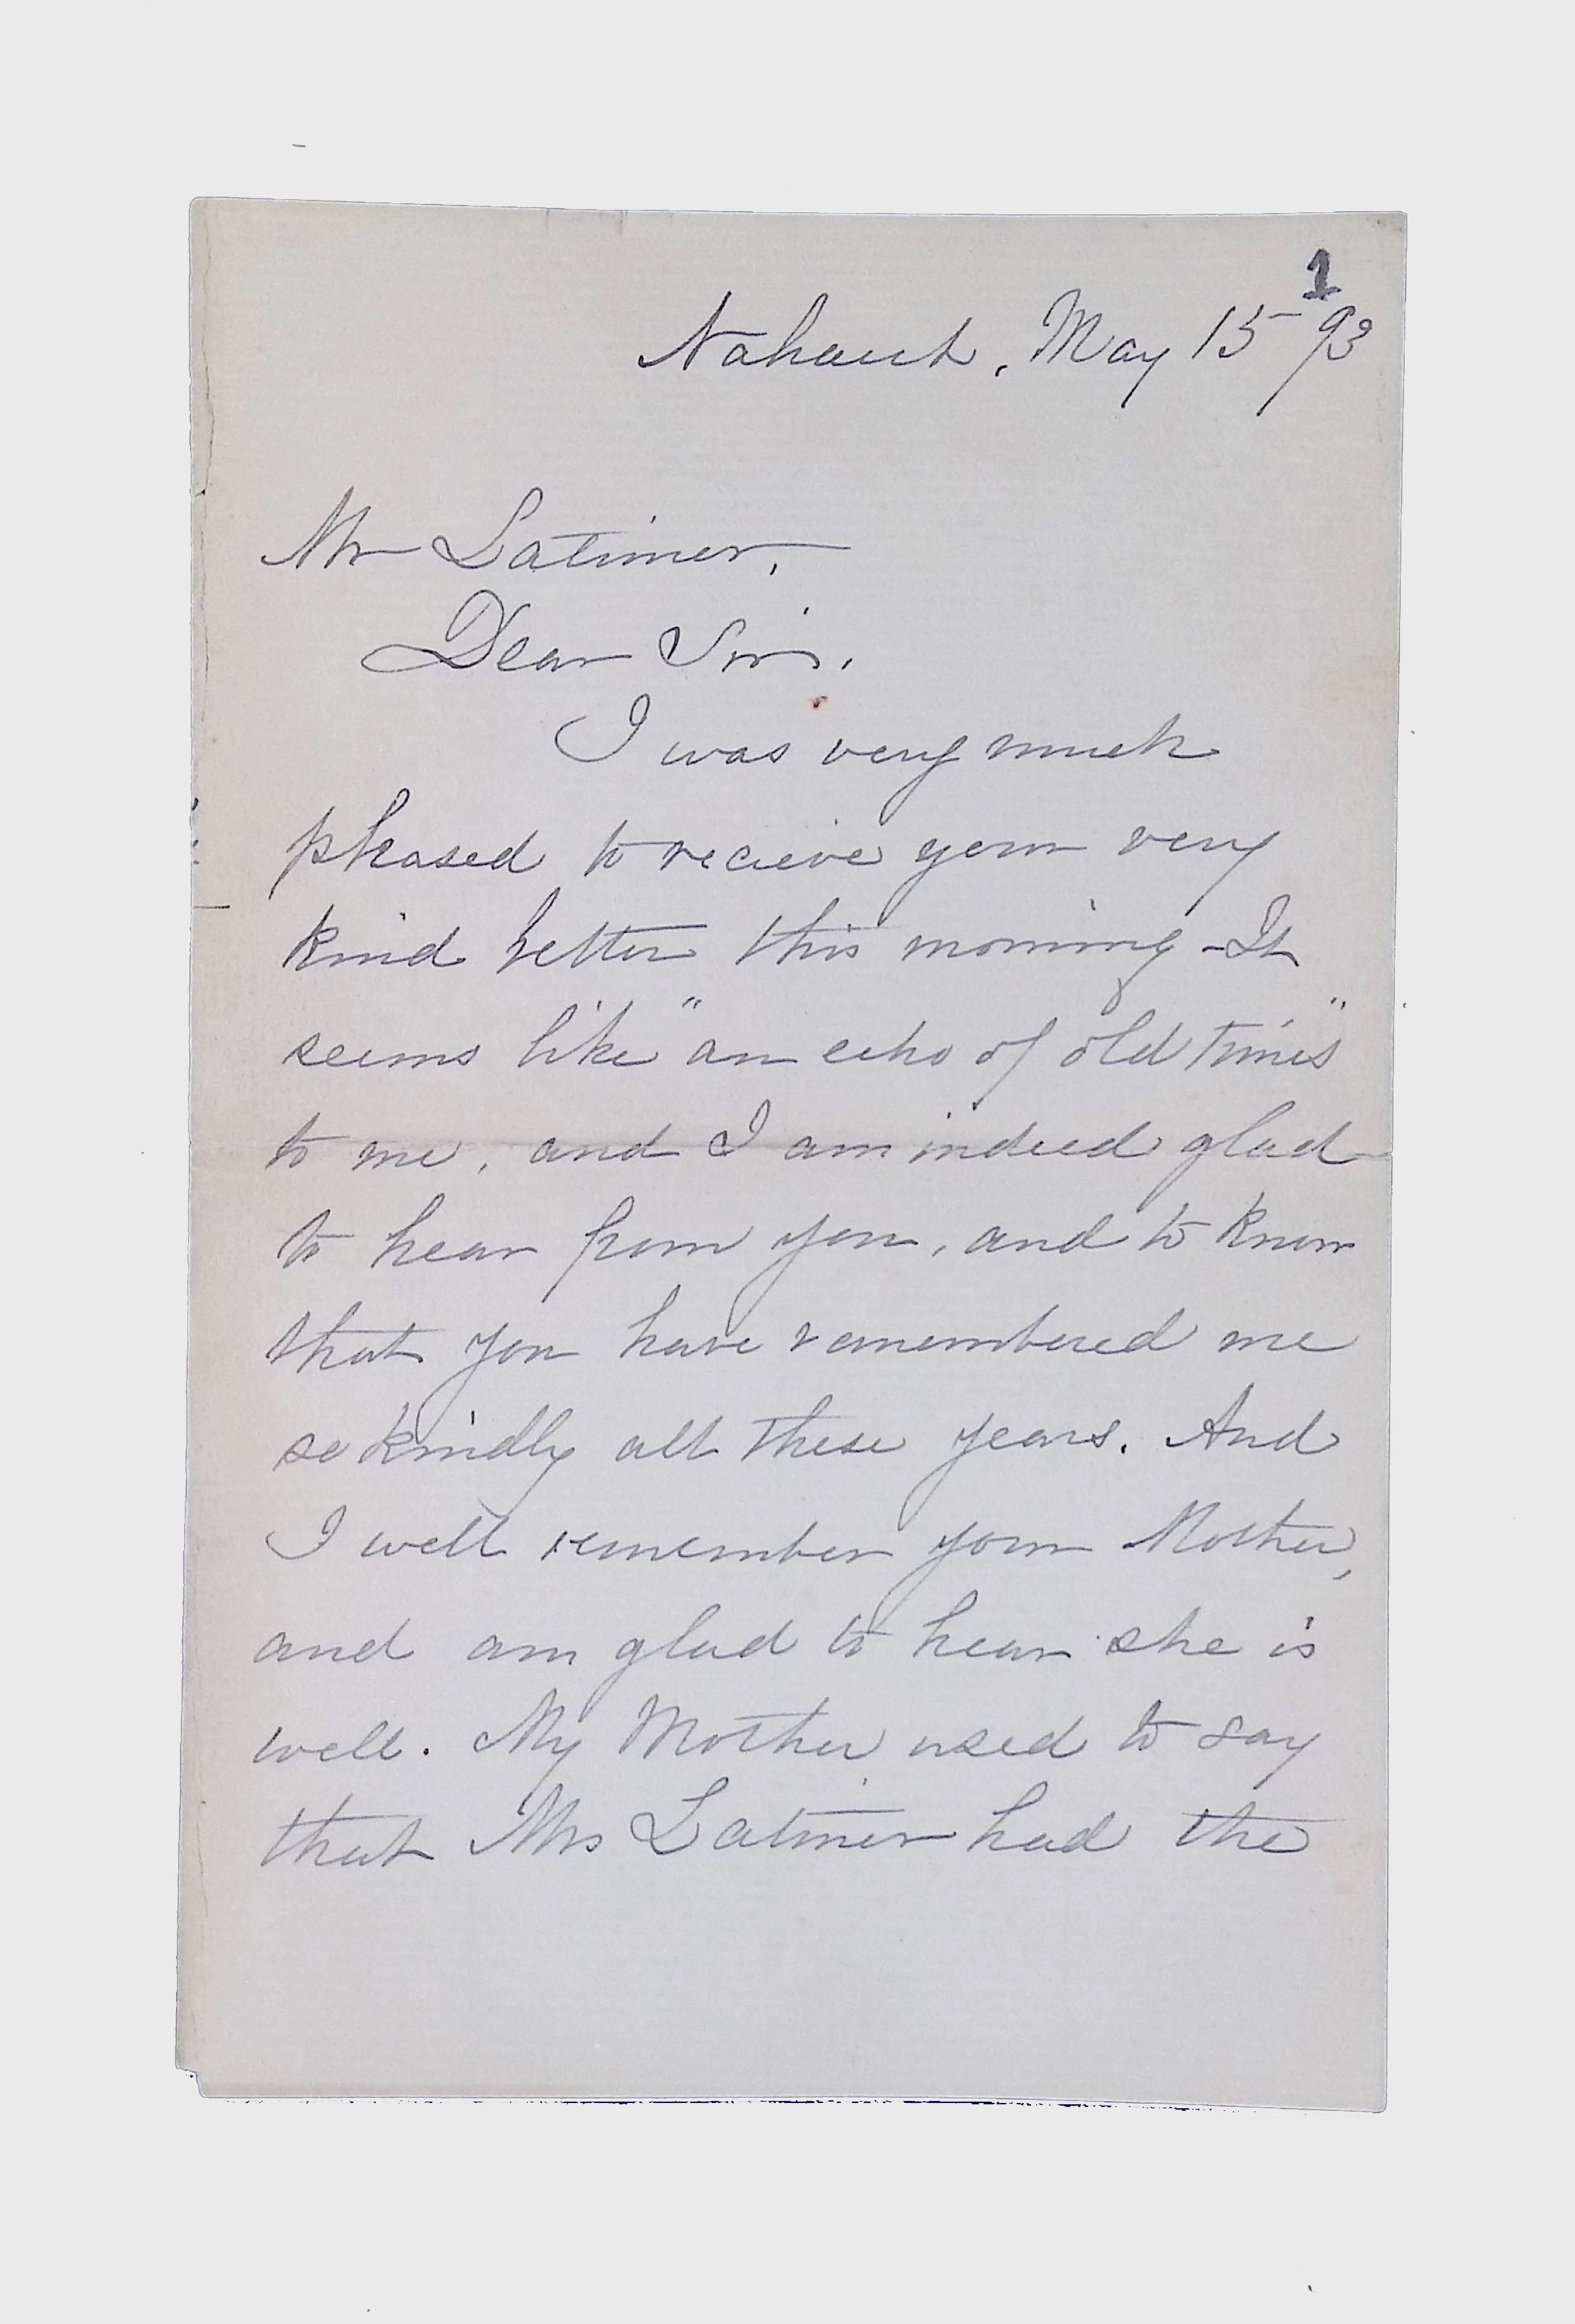 1
Nahant, May 15 93
Mr Latimer,
Dear Sir.
I was very much
pleased to recieve your very
kind letter this morning - It
seems like "an echo of old times"
to me, and I am indeed glad
to hear from you, and to know
that you have remembered me
so kindly all these years. And
I well remember your Mother,
and am glad to hear she is
well. My Mother used to say
that Mrs Latimer had the